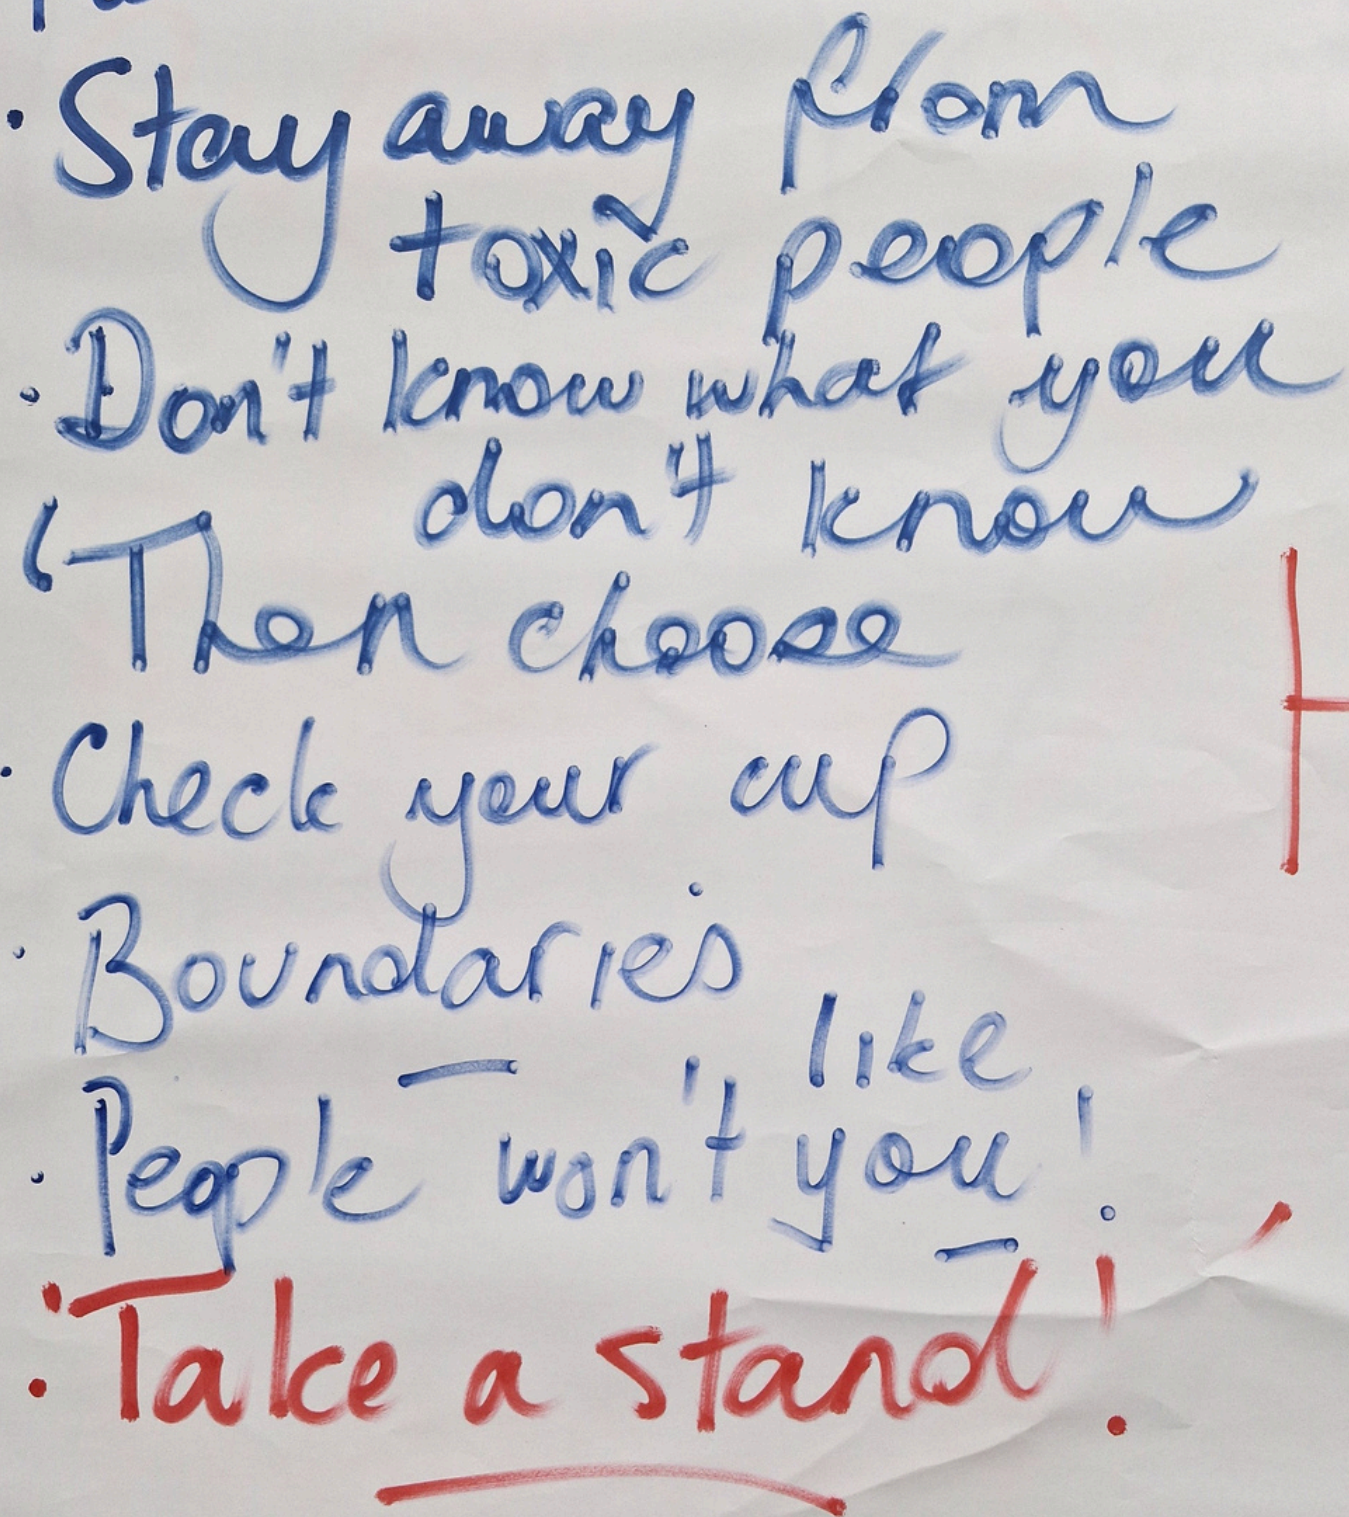 · Stay away from
toxic people
· Don't know what you
don't know
Then choose
· Check your cup
· Boundaries
like
· People won't you!
· Take a stand!